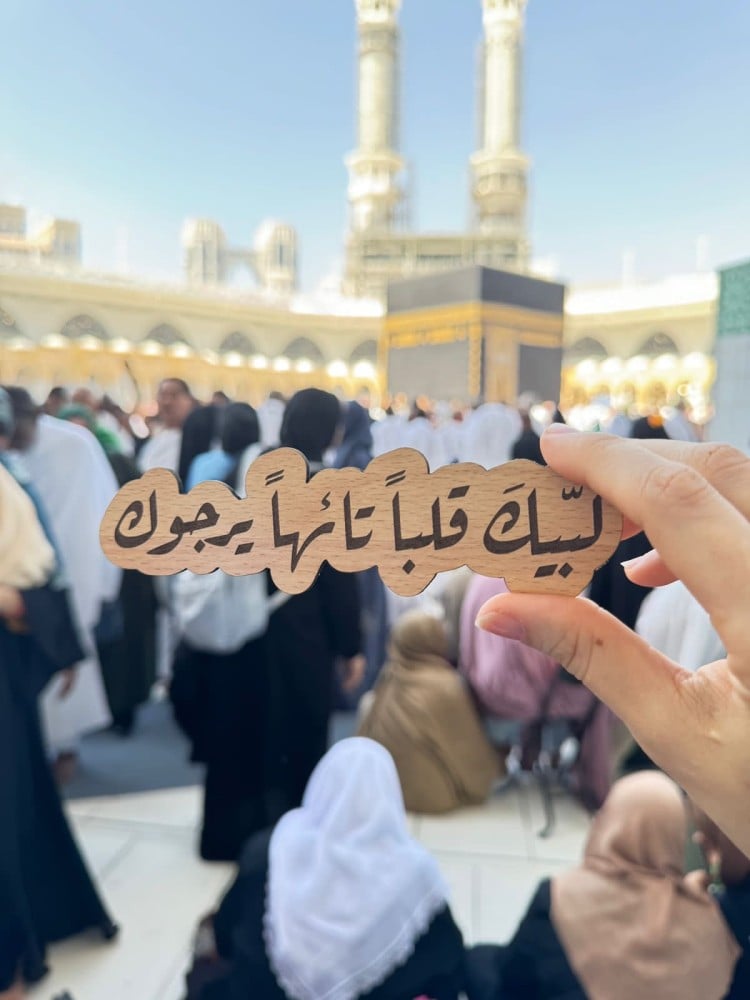 لبّيكَ قلباً تائهاً يرجوك